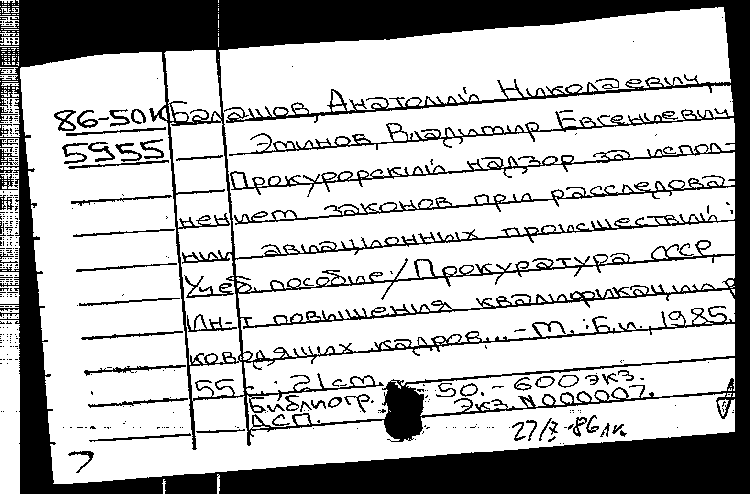 86-50К Балашов, Анатолий Николаевич,
5955 Эминов, Владимир Евгениевич
Прокурорский надзор за испол-
нением законов при расследова-
нии авиационных происшествий:
Учеб. пособие / Прокуратура СССР,
Ин-т повышения квалификации р
ководящих кадров... - М. : Б.и., 1985.
55 с. ; 21 см.
Библиогр. 50. - 600 экз.
ДСП. Экз. N000007.
27/X-86